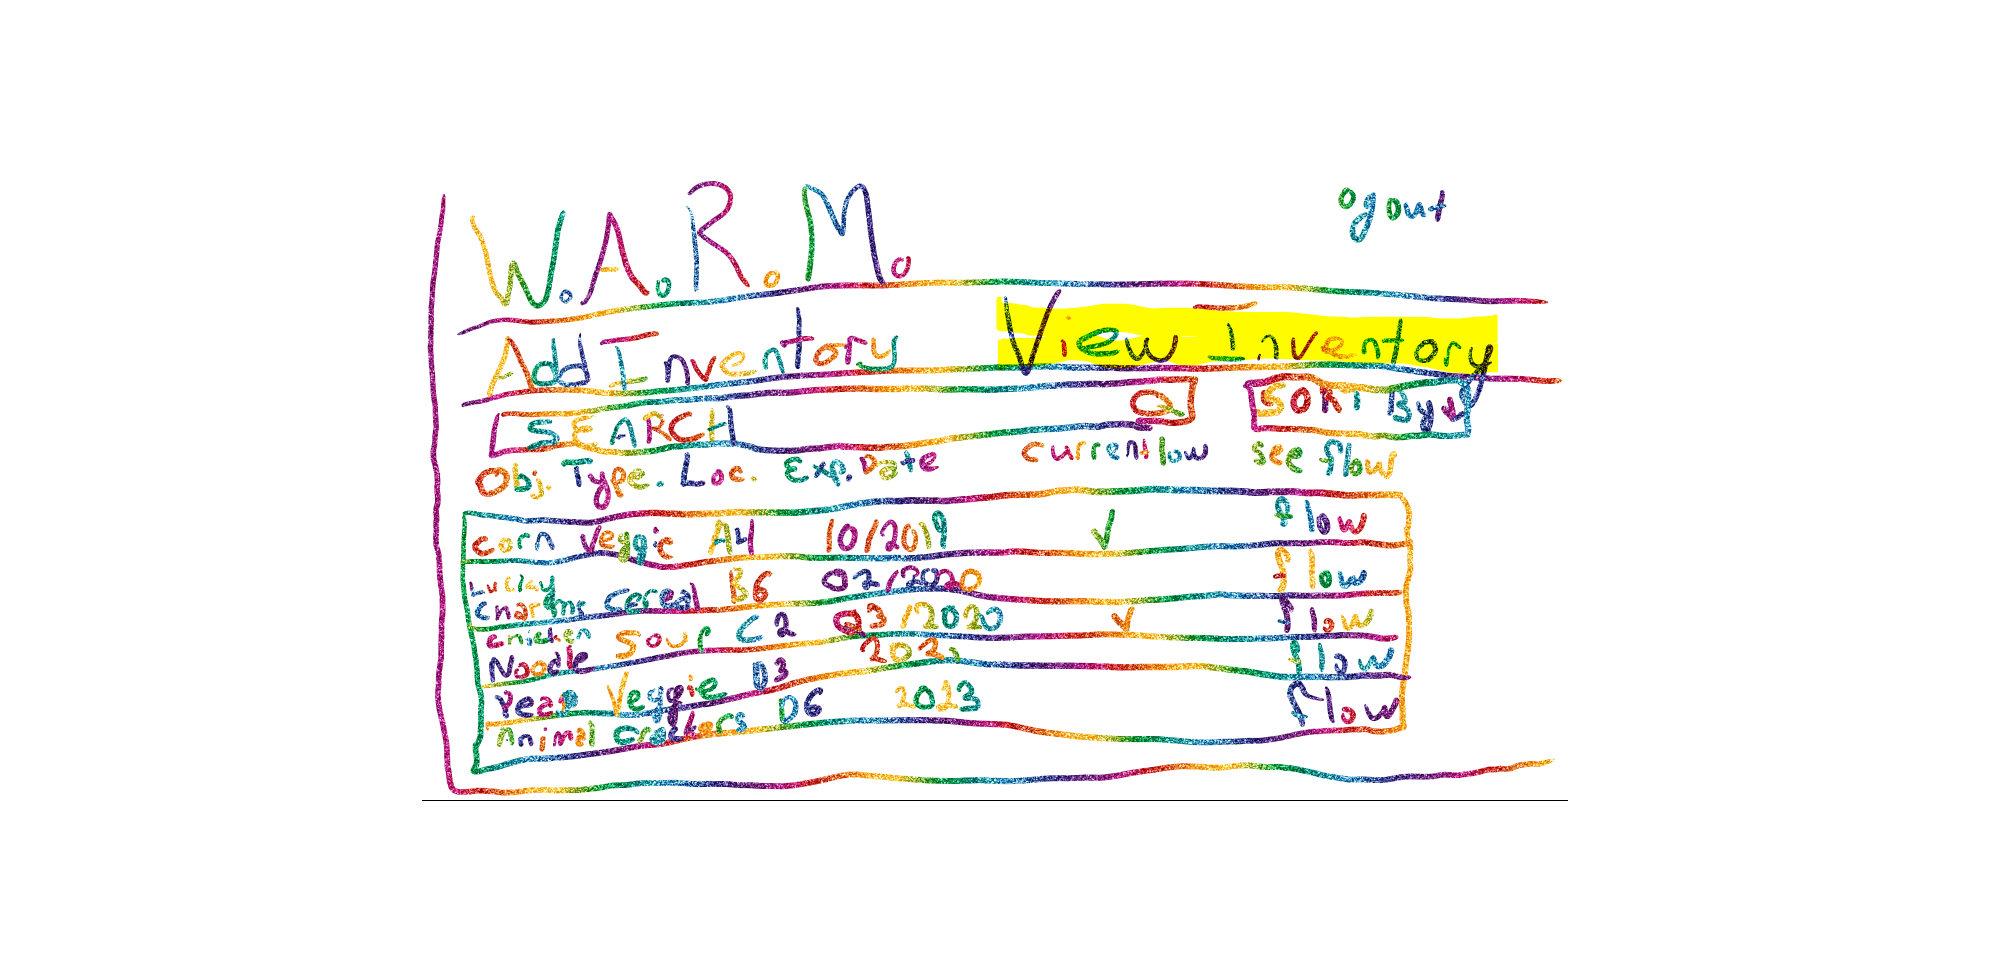 W.A.R.M. ogout
Add Inventory View Inventory
SEARCH SORT By
Obj. Type. Loc. Exp. Date current low see flow
corn veggie A4 10/2019 flow
Luclay Charms Cereal B6 02/2020 flow
Chicken Noodle Soup C2 03/2020 flow
Peas Veggie D3 2021 flow
Animal Crackers D6 2023 flow